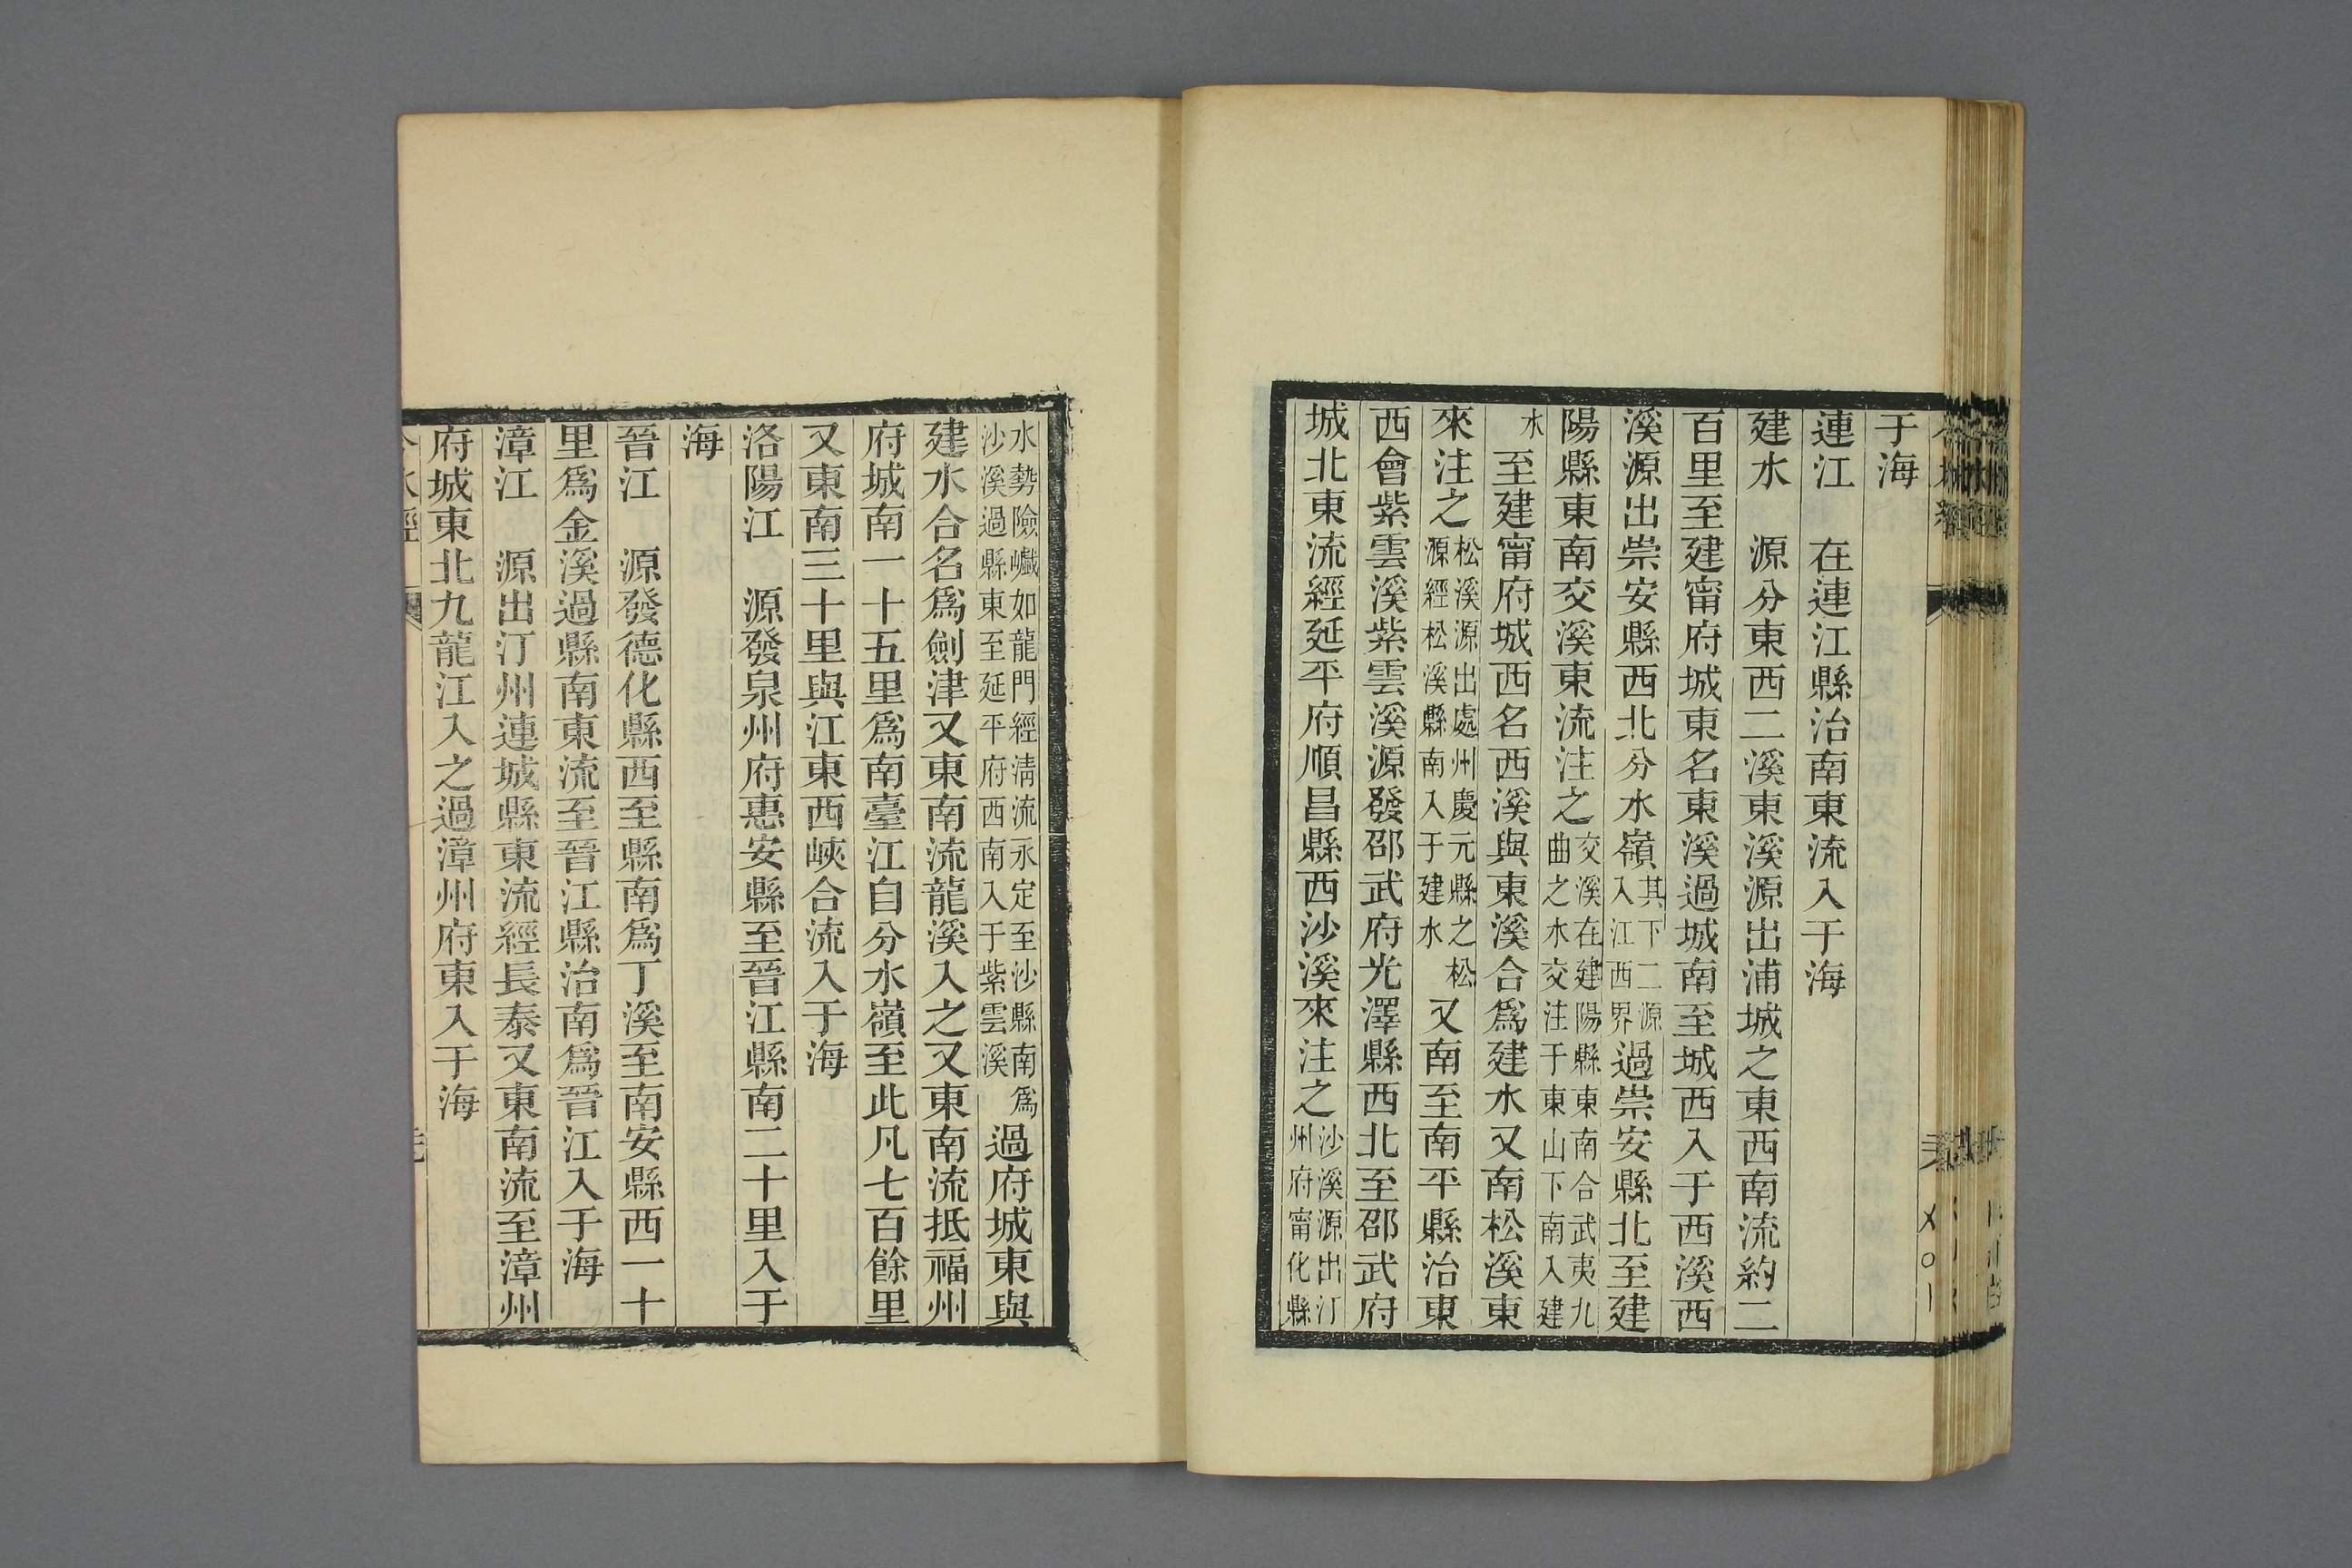 于海
連江　在連江縣治南東流入于海
建水　源分東西二溪東溪源出浦城之東西南流約二
百里至建甯府城東名東溪過城南至城西入于西溪西
溪源出崇安縣西北分水嶺其下二源入江西界過崇安縣北至建
陽縣東南交溪東流注之交溪在建陽縣東南合武夷九曲之水交注于東山下南入建
水　至建甯府城西名西溪與東溪合爲建水又南松溪東
來注之松溪源出處州慶元縣之松源經松溪縣南入于建水　又南至南平縣治東
西會紫雲溪紫雲溪源發邵武府光澤縣西北至邵武府
城北東流經延平府順昌縣西沙溪來注之沙溪源出汀州府甯化縣
水勢險巇如龍門經淸流永定至沙縣南爲沙溪過縣東至延平府西南入于紫雲溪　過府城東與
建水合名爲劍津又東南流龍溪入之又東南流抵福州
府城南一十五里爲南臺江自分水嶺至此凡七百餘里
又東南三十里與江東西峽合流入于海
洛陽江　源發泉州府惠安縣至晉江縣南二十里入于
海
晉江　源發德化縣西至縣南爲丁溪至南安縣西一十
里爲金溪過縣南東流至晉江縣治南爲晉江入于海
漳江　源出汀州連城縣東流經長泰又東南流至漳州
府城東北九龍江入之過漳州府東入于海
今水經